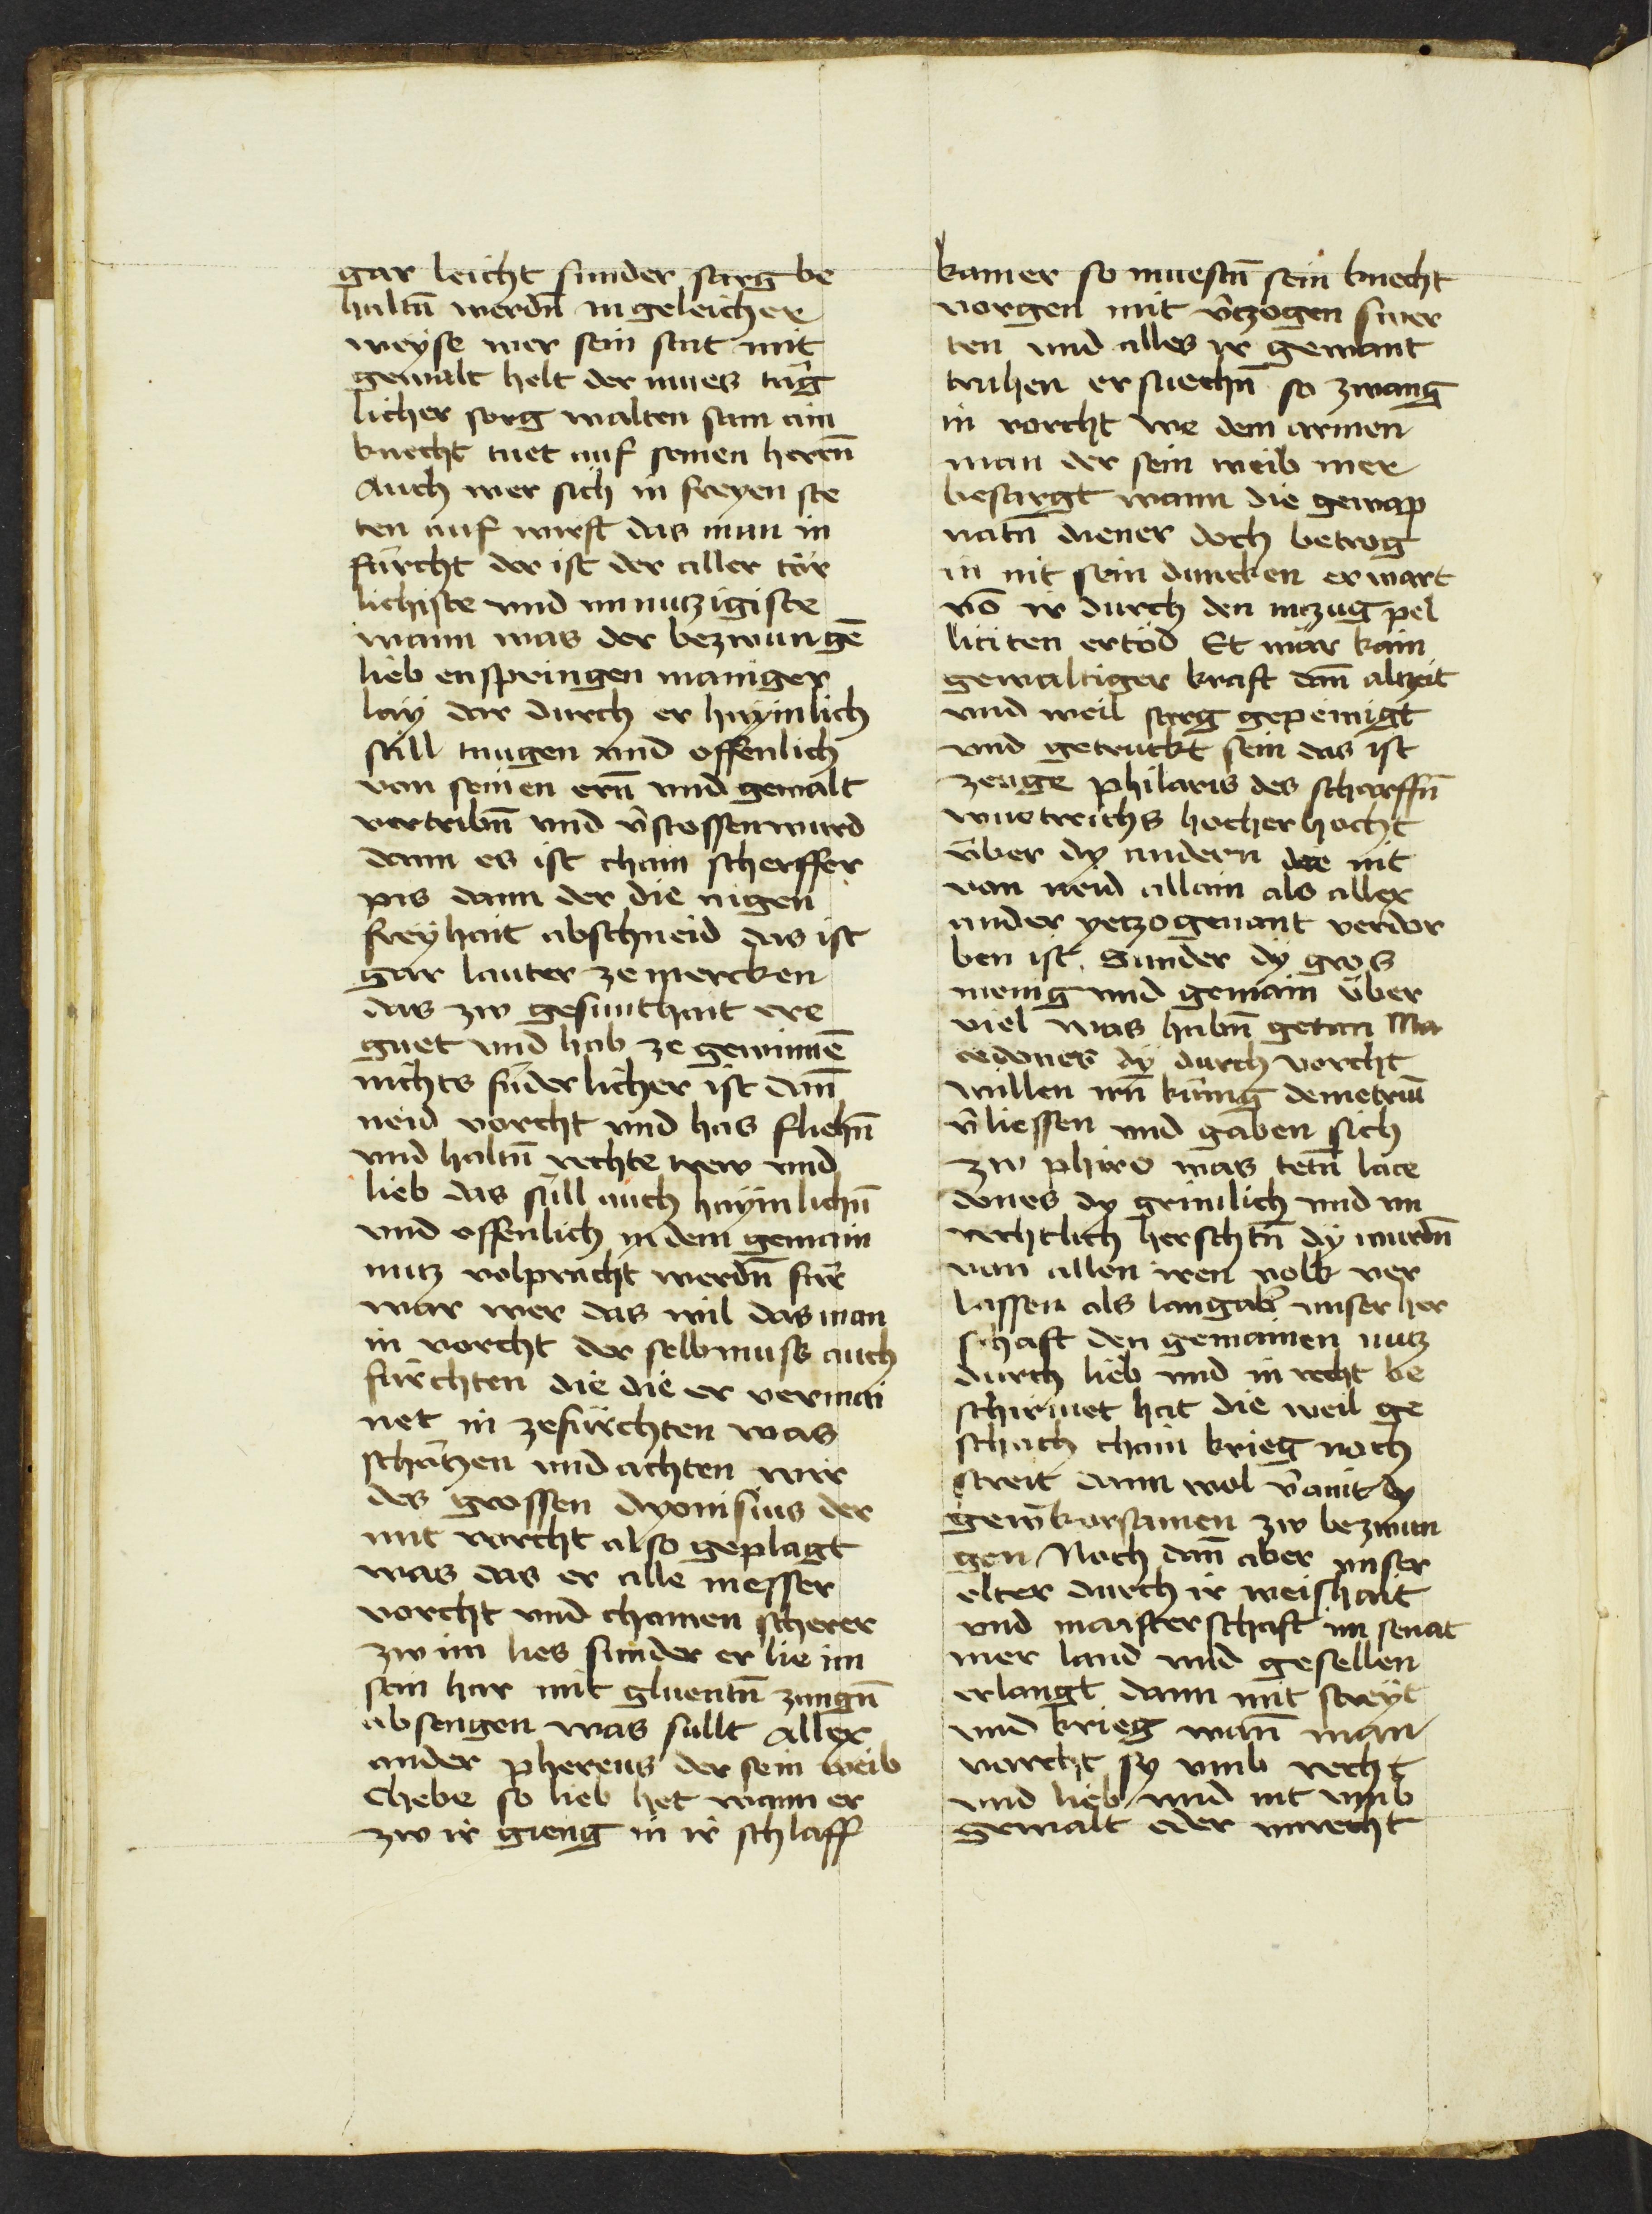 gar leicht sunder sarg be
haltn̄ werdn̄ in geleicher
weyse wer sein stat mit
gewalt helt der mues tag
licher sorg walten sam ain
knecht tuet auf seinen herrn̄
Auch wer sich in freyen ste
ten auf wirft das man in
fürcht der ist der aller tör
lichiste vnd vnnutzigiste
wann was der bezwungē
lieb enspringen maniger
lay dar durch er haymlich
still taugen vnd offenlich
von seinen ern̄ vnd gewalt
vertribn̄ vnd v̄stossen wurd
dann es ist chain scherffer
pis dann der die aigen
freyhait abschneid das ist
gar lauter ze mercken
das zw gesunthait ere
guet vnd hab ze gewinnē
nichts fůderlicher ist dan̄
neid vorcht vnd has fliehn̄
vnd haltn̄ rechte trew vnd
lieb das still auch haymlichn̄
vnd offenlich in dem gemain
nutz volpracht werdn̄ für
war wer das wil das man
in vorcht der selb muss auch
fürchten die die er vermai
net in zefürchten was
schätzen vnd achten wir
des grossen dyonisius der
mit vorcht also geplagt
was das er alle messer
vorcht vnd chainen scherer
zw im lies sunder er lie im
sein har mit gluentn̄ zungn̄
absengen was sullt Allex
ander phereus der sein weib
Chebe so lieb het wann er
zw ir gieng in ir schlaff
kamer so muestn̄ sein knecht
vorgen mit v̄tzogen swer
ten vnd alles ir gewant
truhen ersuechn̄ so zwang
in vorcht we dem armen
man der sein weib mer
besargt wann die gewap
natn̄ diener doch betrog
in nit sein duncken er wart
vō ir durch den inzug pel
liciten ertöd Et mär kain
gewaltiger kraft dan̄ alzeit
vnd weil sorg gepeinigt
vnd getruckt sein das ist
zeuge philaris des scharffn̄
wuetrichs hocher hocht
über dy andern die nit
von neid allain als allex
ander yetzo genant verdor
ben ist Sunder dy gros
menig vnd gemain über
viel was habn̄ getan Ma
cedones dy durch vorcht
willen irn̄ küng demetriū
v̄liessen vnd gaben sich
zw phiro was tetn̄ lace
dones dy grimlich vnd vn
rechtlich herschtn̄ dy wurdn̄
von allen iren volk ver
lassen als lang ab' vnser her
schaft den gemainen nutz
durch lieb vnd in recht be
schirmet hat die weil ge
schach chain krieg noch
streit dann wol v̄ainit dy
vngehorsamen zw bezwun
gen Noch dan̄ aber vnser
elter durch ir weishait
vnd maisterschaft im senat
mer land vnd gesellen
erlangt dann mit streyt
vnd krieg wan̄ man
vorcht sy vmb recht
vnd lieb vnd nit vmb
gewalt oder vnrecht